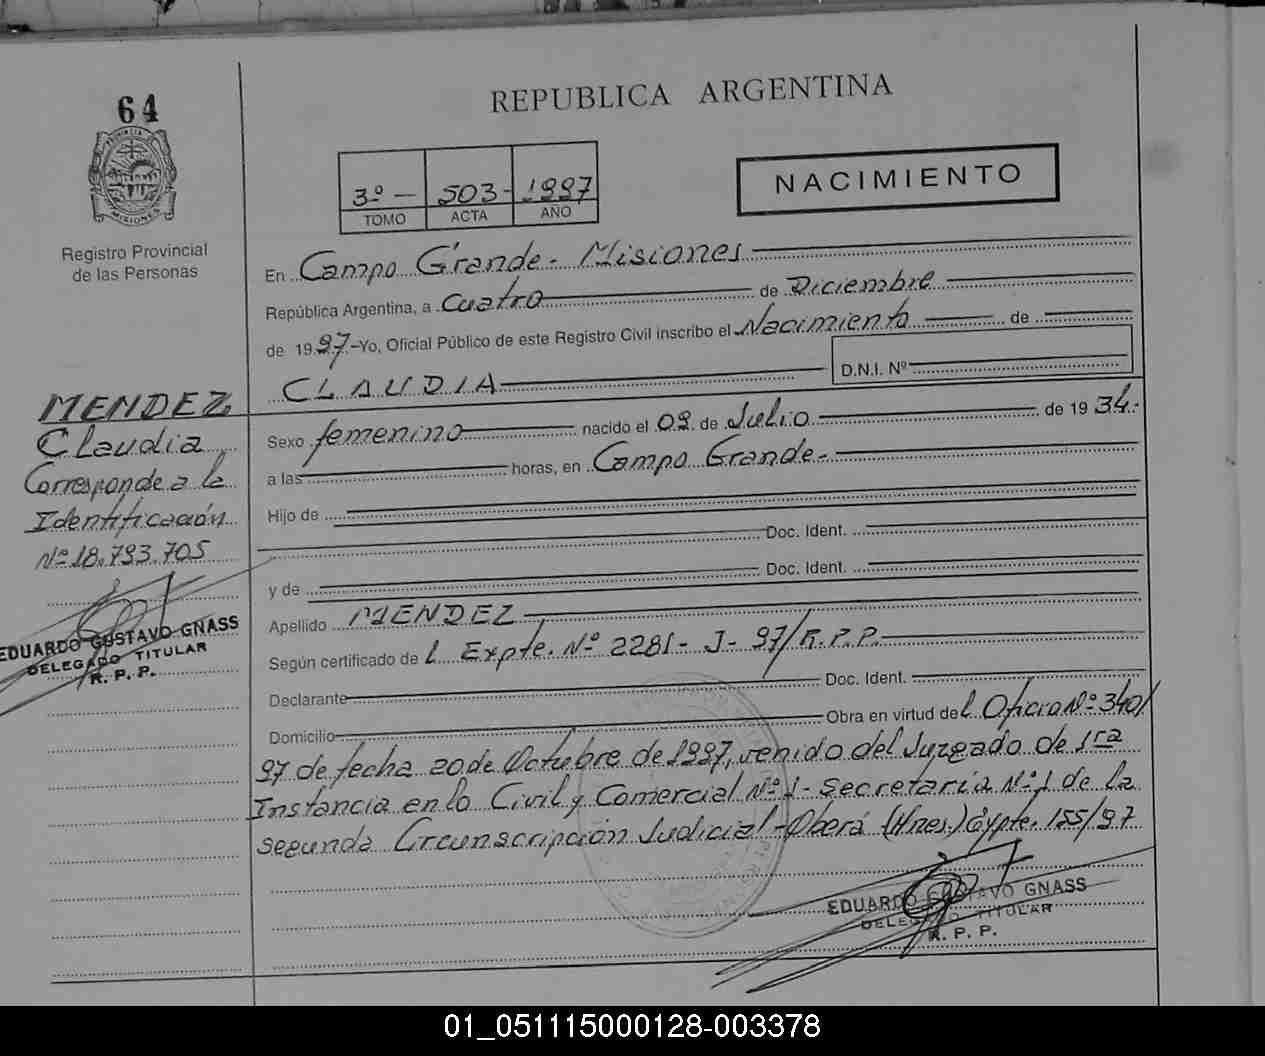 64
REPUBLICA ARGENTINA
PROVINCIA
MISIONES
Registro Provincial
de las Personas
3º - 503 - 1997
TOMO ACTA AÑO
NACIMIENTO
En Campo Grande - Misiones
República Argentina, a Cuatro de Diciembre
de 1997 - Yo, Oficial Público de este Registro Civil inscribo el Nacimiento de
CLAUDIA D.N.I. Nº
MENDEZ
Claudia
Corresponde a la
Identificación
Nº 18.793.705
EDUARDO GUSTAVO GNASS
DELEGADO TITULAR
R. P. P.
Sexo femenino nacido el 09 de Julio de 1934.-
a las horas, en Campo Grande -
Hijo de
Doc. Ident.
y de Doc. Ident.
Apellido MENDEZ
Según certificado de l Expte. Nº 2281 - J - 97/R.P.P.
Declarante Doc. Ident.
Domicilio Obra en virtud de l Oficio Nº 340/
97 de fecha 20 de Octubre de 1997, venido del Juzgado de 1ra
Instancia en lo Civil y Comercial Nº 1 - Secretaria Nº 1 de la
segunda Circunscripción Judicial - Oberá (Mnes.) Expte. 155/97
EDUARDO GUSTAVO GNASS
DELEGADO TITULAR
R. P. P.
01_051115000128-003378